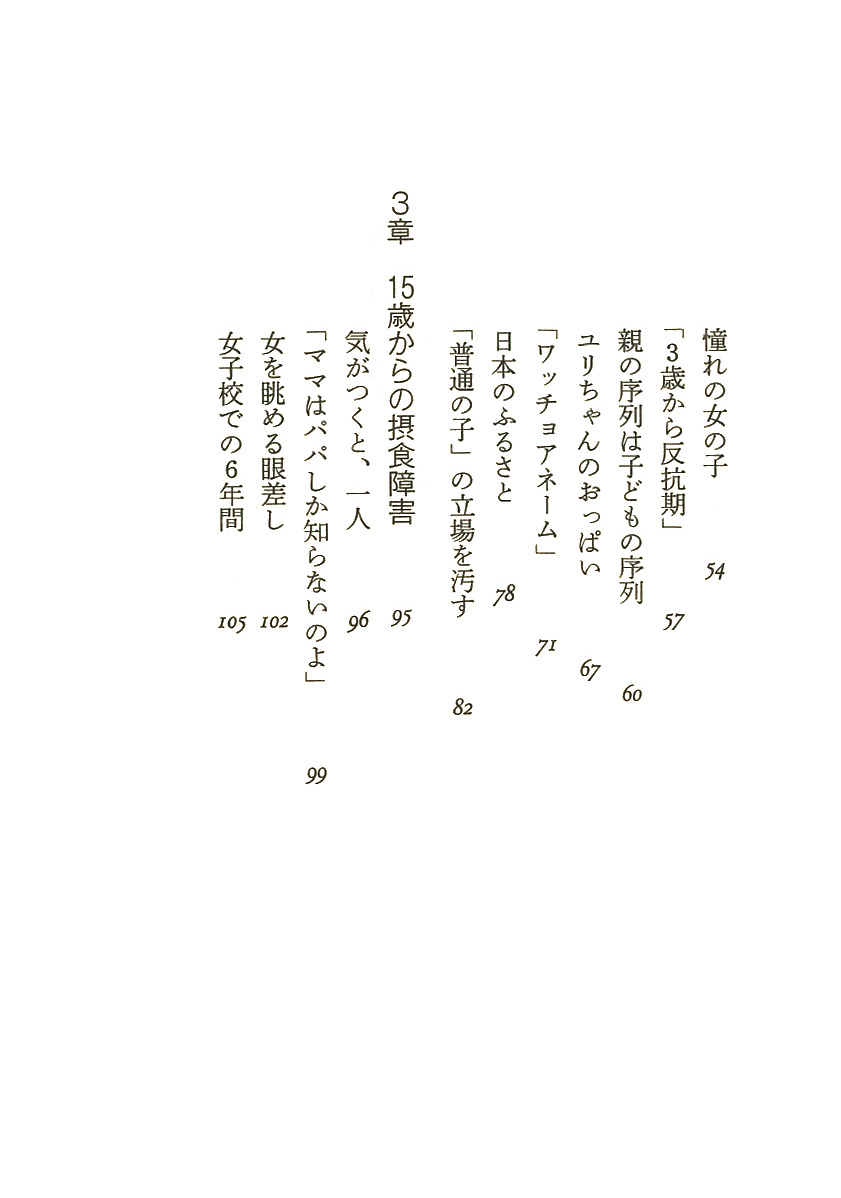 憧れの女の子 54
「3歳から反抗期」 57
親の序列は子どもの序列 60
ユリちゃんのおっぱい 67
「ワッチョアネーム」 71
日本のふるさと 78
「普通の子」の立場を汚す 82
3章 15歳からの摂食障害 95
気がつくと、一人 96
「ママはパパしか知らないのよ」 99
女を眺める眼差し 102
女子校での6年間 105